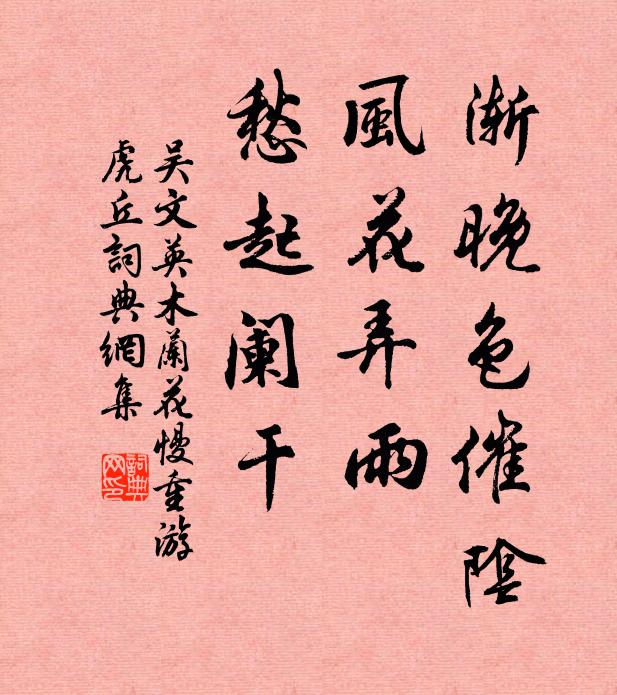 渐晚色催陰
風花弄雨
愁起阑干
吴文英木蘭花慢重游
虎丘詞典網集
詞典网印